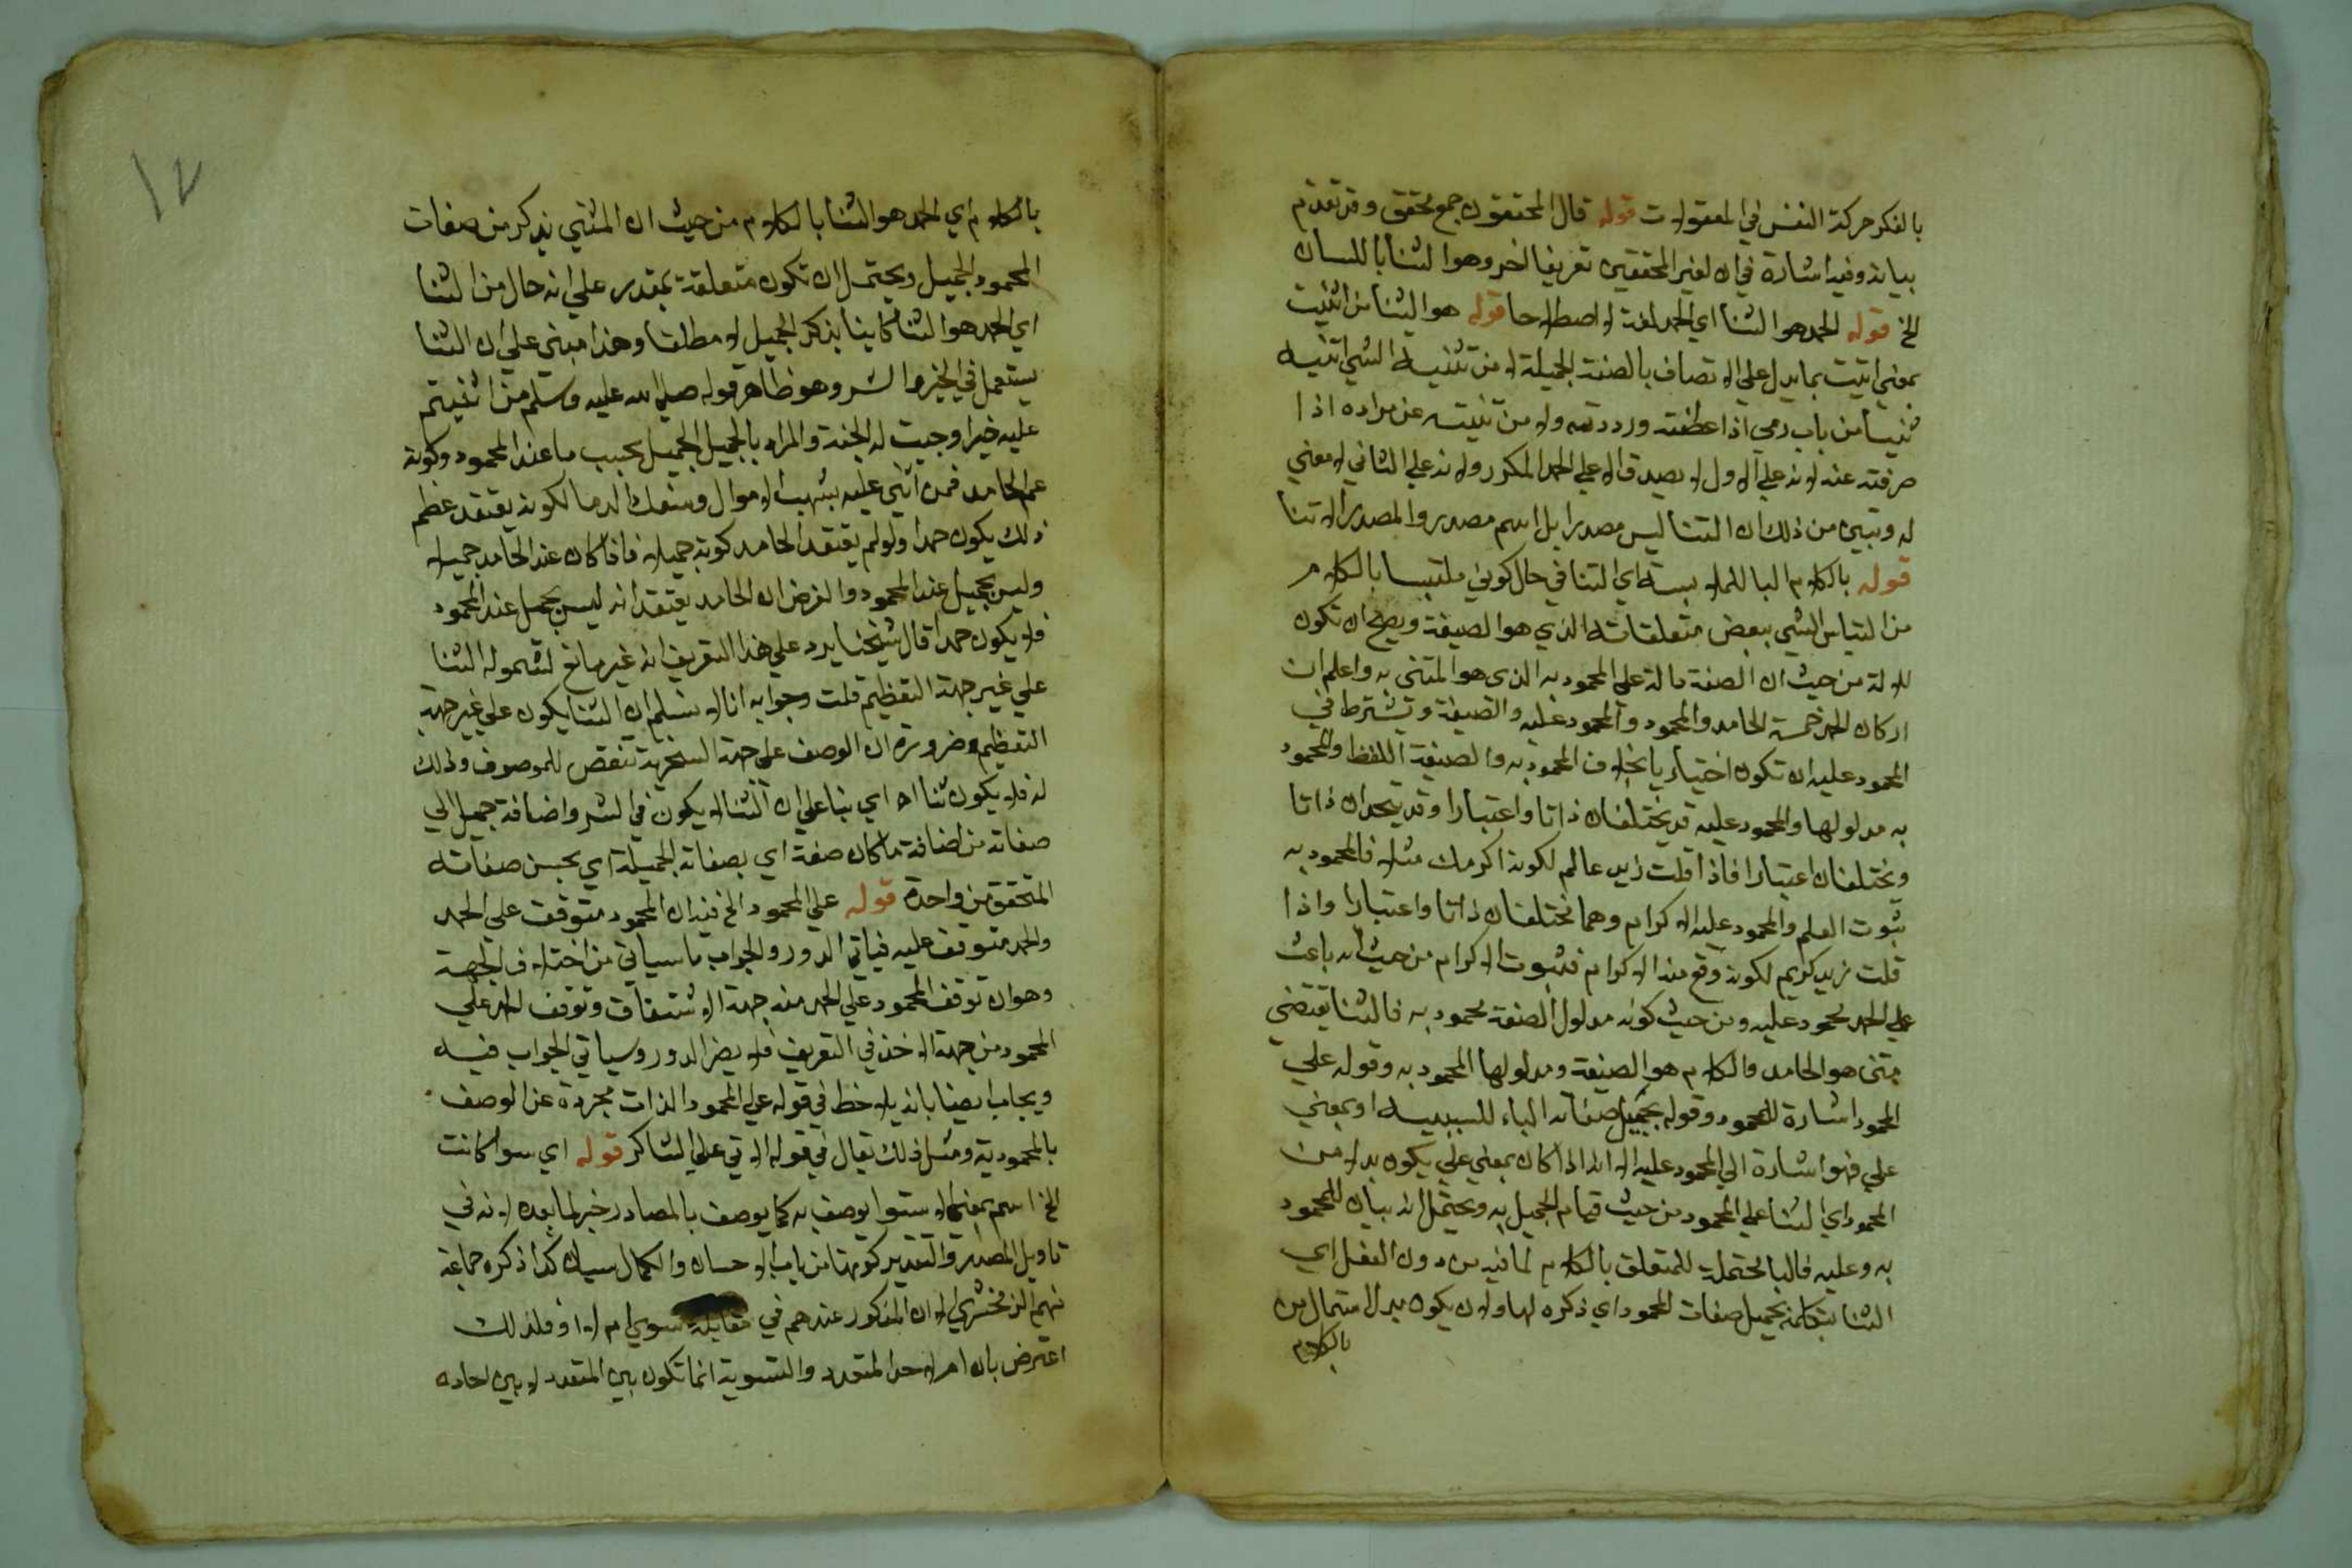 بالفكر حركة النفس في المعقولات قوله قال المحققون جمع محقق وقد تقدم
بيانه وفيه اشارة في ان لغير المحققين تعريفا اخر وهو الثنا باللسان
الخ قوله الحمد هو الثنا اي الحمد لغة لا اصطلاحا قوله هو الثنا من اثنيت
بمعني اتيت بما يدل علي الاتصاف بالصفة الجميلة لا من تثنية الشي اثنيه
ثنيا من باب رمي اذا عطفته ورددته ولا من ثنيته عن مراده اذا
صرفته عنه لانه علي الاول لا يصدق الا علي الحمد المكرر ولانه علي الثاني لا معني
له وتبين من ذلك ان الثنا ليس مصدرا بل اسم مصدر والمصدر الاثنا
قوله بالكلام البا للملابسة اي الثنا في حال كوني ملتبسا بالكلام
من التباس الشي ببعض متعلقاته الذي هو الصيغة ويصح ان تكون
للالة من حيث ان الصفة دالة علي المحمود به الذي هو المثني به واعلم ان
اركان الحمد خمسة الحامد والمحمود والمحمود عليه والصيغة ويشترط في
المحمود عليه ان تكون اختياريا بخلاف المحمود به والصيغة اللفظ والمحمود
به مدلولها والمحمود عليه قد يختلفان ذاتا واعتبارا وقد يتحدان ذاتا
ويختلفان اعتبارا فاذا قلت زيد عالم لكونه اكرمك مثلا فالمحمود به
ثبوت العلم والمحمود عليه الاكرام وهما مختلفان ذاتا واعتبارا واذا
قلت زيد كريم لكونه وقع منه الاكرام فثبوت الاكرام من حيث انه باعث
علي الحمد محمود عليه ومن حيث كونه مدلول الصفة محمود به فالثنا يقتضي
مثني هو الحامد والكلام هو الصيغة ومدلولها المحمود به وقوله علي
المحمود اشارة للمحمود وقوله بجميل صفاته الباء للسببية او بمعني
علي فهو اشارة الي المحمود عليه الا انه اذا كان بمعني علي يكون بدلا من
المحمود اي الثنا علي المحمود من حيث قيام الجميل به ويحتمل انه بيان للمحمود
به وعليه فالبا محتملة للمتعلق بالكلام لما فيه من دون الفعل اي
الثنا بتكلمه بجميل صفات المحمود اي ذكره لها ولان يكون بدل اشتمال من
بالكلام
بالكلام اي الحمد هو الثنا بالكلام من حيث ان المثني يذكر من صفات
المحمود الجميل ويحتمل ان تكون متعلقة بمقدر علي انه حال من الثنا
اي الحمد هو الثنا كاينا بذكر الجميل لا مطلقا وهذا مبني علي ان الثنا
يستعمل في الخير والشر وهو ظاهر قوله صلي الله عليه وسلم من اثنيتم
عليه خيرا وجبت له الجنة والمراد بالجميل الجميل بحسب ما عند المحمود وكونه
عند الحامد فمن اثني عليه بنهب الاموال وسفك الدما لكونه يعتقد عظم
ذلك يكون حمدا ولو لم يعتقد الحامد كونه جميلا فاذا كان عند الحامد جميلا
وليس بجميل عند المحمود والغرض ان الحامد يعتقد انه ليس بجميل عند المحمود
فلا يكون حمدا قال شيخنا يرد علي هذا التعريف انه غير مانع لشموله الثنا
علي غير جهة التعظيم قلت وجوابه انا لا نسلم ان الثنا يكون علي غير جهة
التعظيم ضرورة ان الوصف علي جهة السخرية تنقص للموصوف واذلال
له فلا يكون ثنا اه اي بنا علي ان الثنا لا يكون في الشر واضافة جميل الي
صفاته من اضافة ما كان صفة اي بصفاته الجميلة اي بحسن صفاته
المتحقق من واحدة قوله علي المحمود الخ فيه ان المحمود متوقف علي الحمد
والحمد متوقف عليه فياتي الدور والجواب ما سياتي من اختلاف الجهة
وهو ان توقف المحمود علي الحمد منه جهة الاشتقاق وتوقف الحمد علي
المحمود من جهة الاخذ في التعريف فلا يضر الدور وسياتي الجواب فيه
ويجاب ايضا بانه يلاحظ في قوله علي المحمود الذات مجردة عن الوصف
بالمحمودية ومثل ذلك يقال في قوله الاتي علي الشاكر قوله اي سوا كانت
الخ اسم بمعني الاستوا يوصف به كما يوصف بالمصادر خبر لما بعده لانه في
تاويل المصدر والتقدير كونها من باب الاحسان والكمال سيان كذا ذكره جماعة
منهم الزمخشري الا ان المذكور عندهم في مقابلة سوي ام لا او فلذلك
اعترض بان ام لاحد المتعدد والتسوية انما تكون بين المتعدد لا بين احاده
١٢